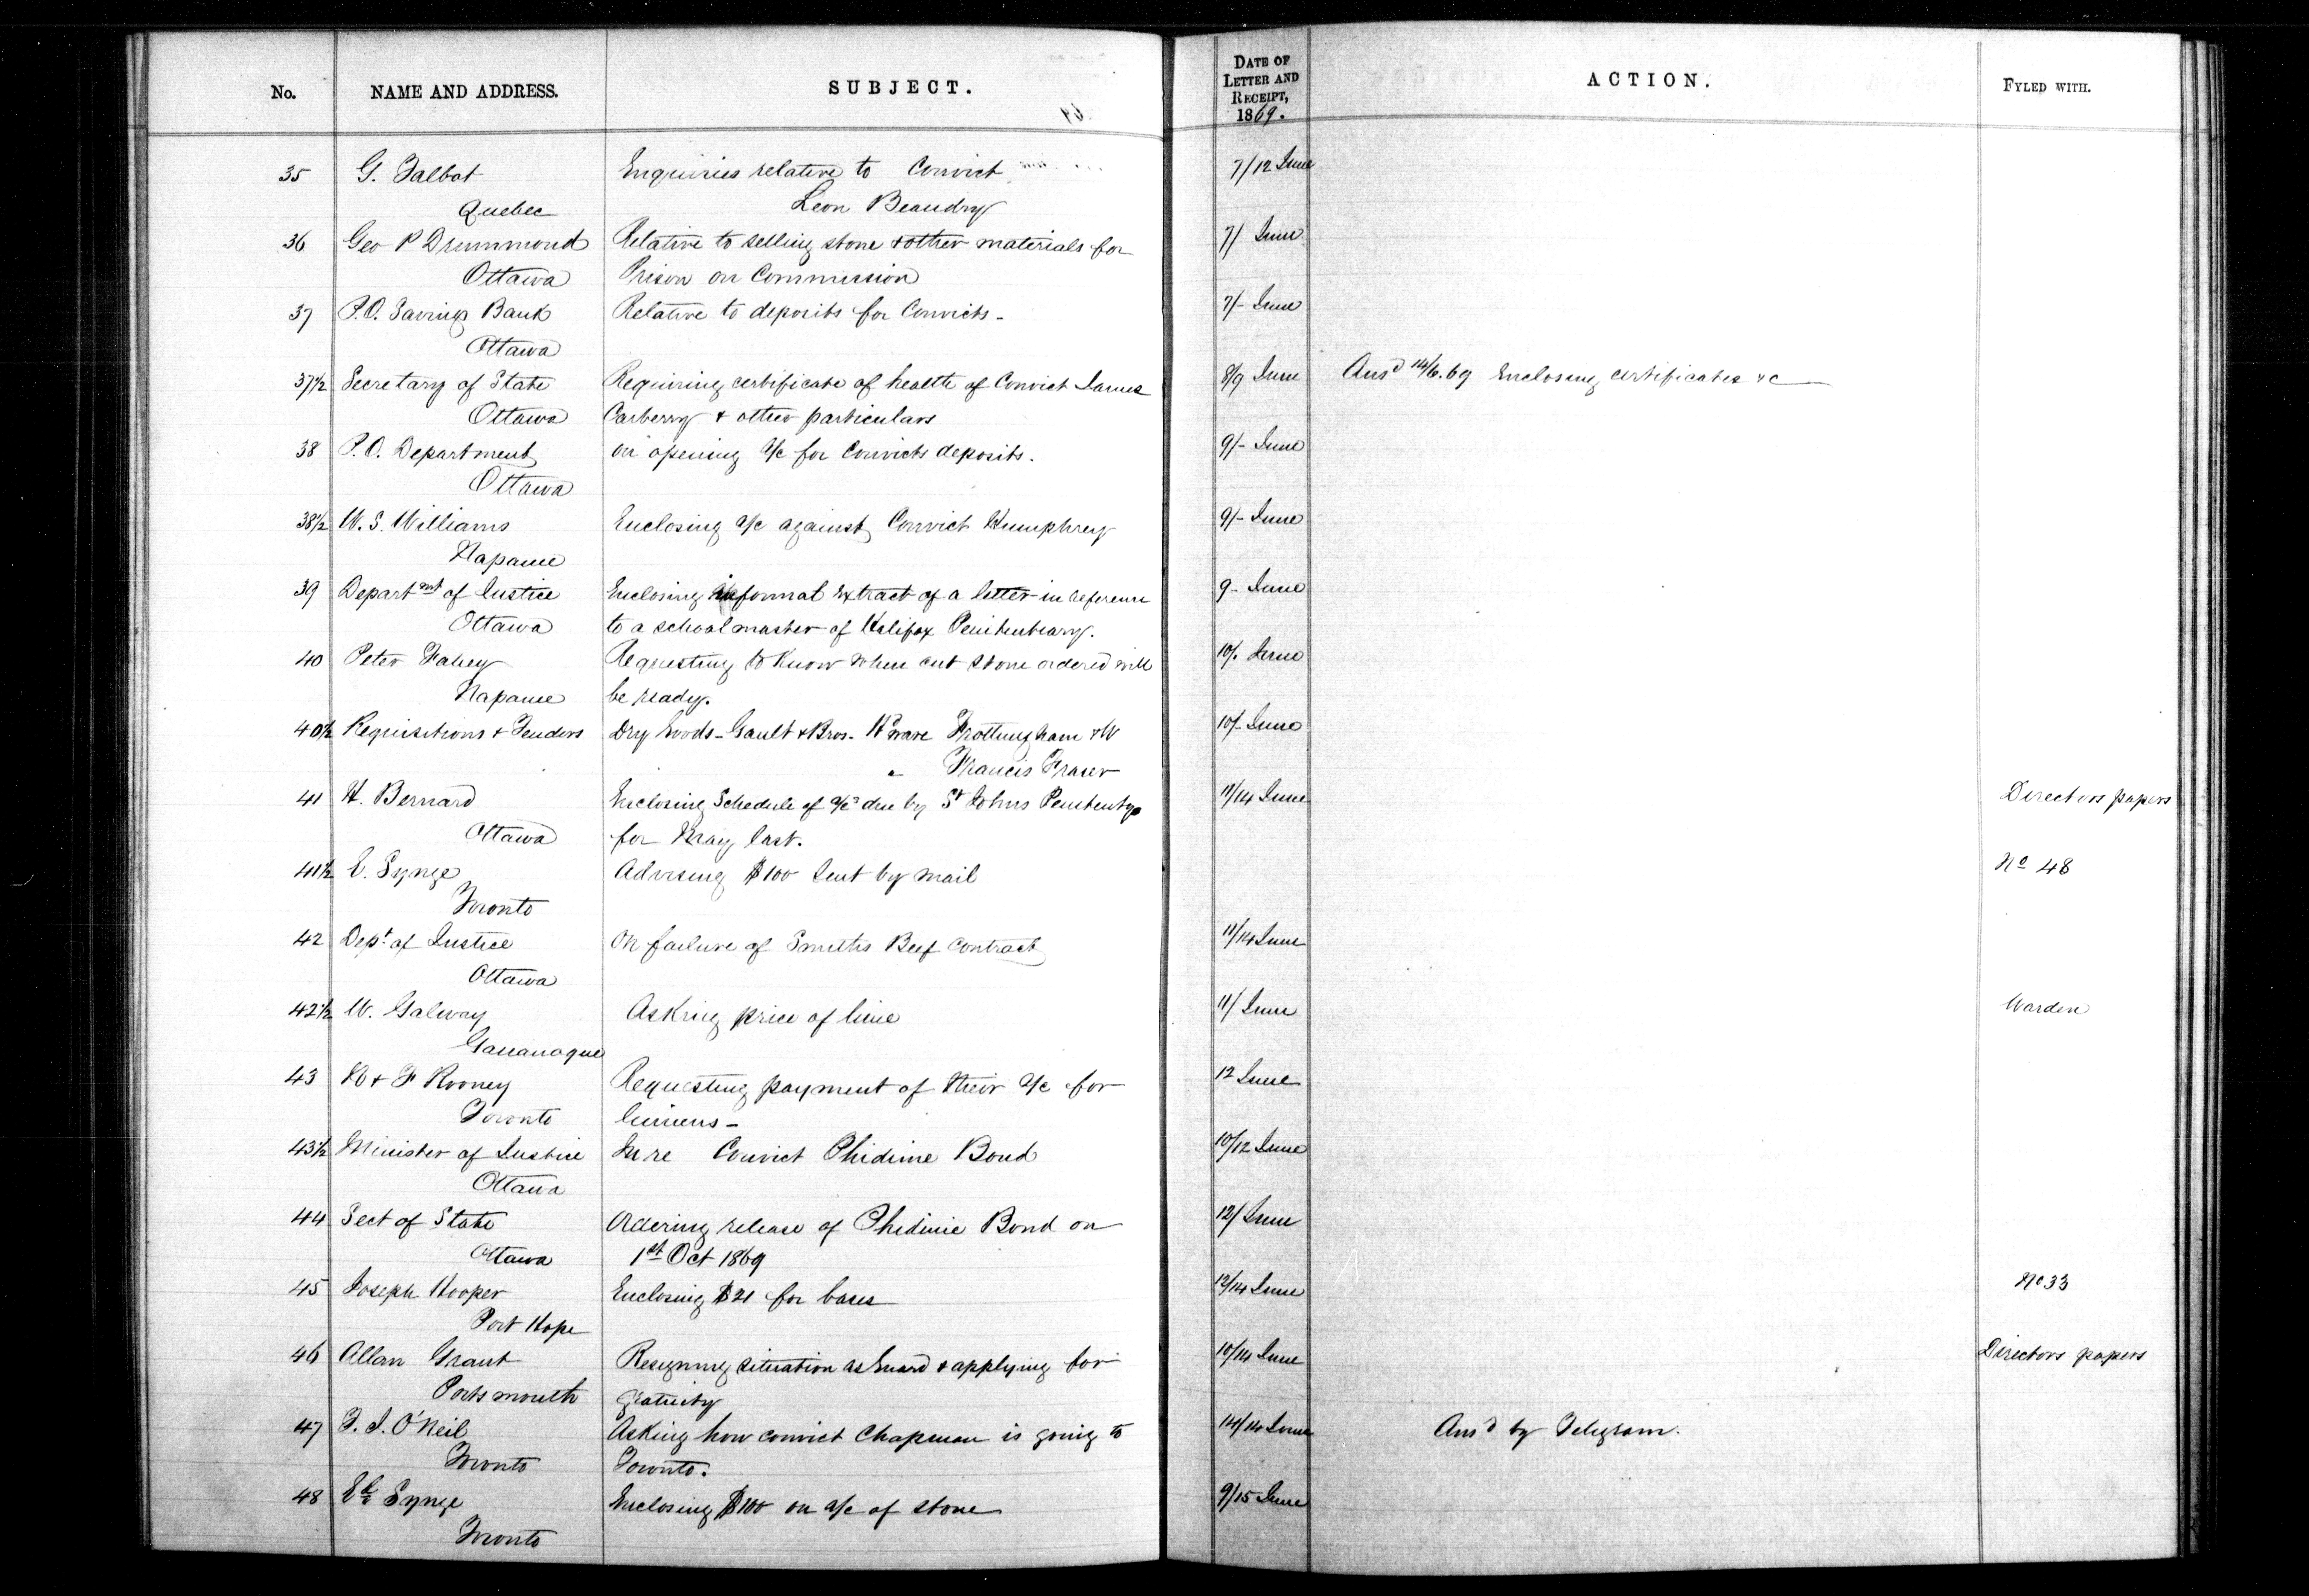 No. NAME AND ADDRESS. SUBJECT. DATE OF LETTER AND RECEIPT, 1869. ACTION. FYLED WITH.
35 G. Talbot Enquiries relative to Convict 7/12 June
Quebec Leon Beaudry
36 Geo P Drummond Relative to selling stone & other materials for 7/ June
Ottawa Prison on Commission
37 P.O. Savings Bank Relative to deposits for Convicts - 7/- June
Ottawa
37½ Secretary of State Requiring certificate of health of Convict James 8/9 June Ansd 14/6.69 Enclosing certificates &c
Ottawa Carberry & other particulars
38 P.O. Department on opening a/c for Convicts deposits. 9/- June
Ottawa
38½ W. S. Williams Enclosing a/c against Convict Humphrey 9/- June
Napanee
39 Departmt of Justice Enclosing informal extract of a letter in reference 9- June
Ottawa to a schoolmaster of Halifax Penitentiary.
40 Peter Fahey Requesting to know when cut stone ordered will 10/. June
Napanee be ready.
40½ Requisitions & Tenders Dry Goods - Gault & Bros. Hdware Frottingham & W 10/- June
" Francis Fraser
41 H. Bernard Enclosing Schedule of a/cs due by St Johns Penitenty 11/14 June Directors papers
Ottawa for May last.
41½ E. Synge Advising $100 sent by mail No 48
Toronto
42 Dept of Justice On failure of Smiths Beef Contract 11/14 June
Ottawa
42½ W. Galway Asking price of lime 11/ June Warden
Gananoque
43 & F Rooney Requesting payment of their a/c for 12 June
Toronto linens -
43½ Minister of Justice In re Convict Phidime Bond 10/12 June
Ottawa
44 Sect of State Ordering release of Phidime Bond on 12/ June
Ottawa 1st Oct 1869
45 Joseph Hooper Enclosing $21 for bases 12/14 June No 33
Port Hope
46 Allan Grant Resigning situation as Guard & applying for 10/14 June Directors papers
Portsmouth gratuity
47 T. J. O'Neil Asking how convict Chapman is going to 14/14 June Ansd by Telegram.
Toronto Toronto.
48 Ed Synge Enclosing $100 on a/c of stone 9/15 June
Toronto